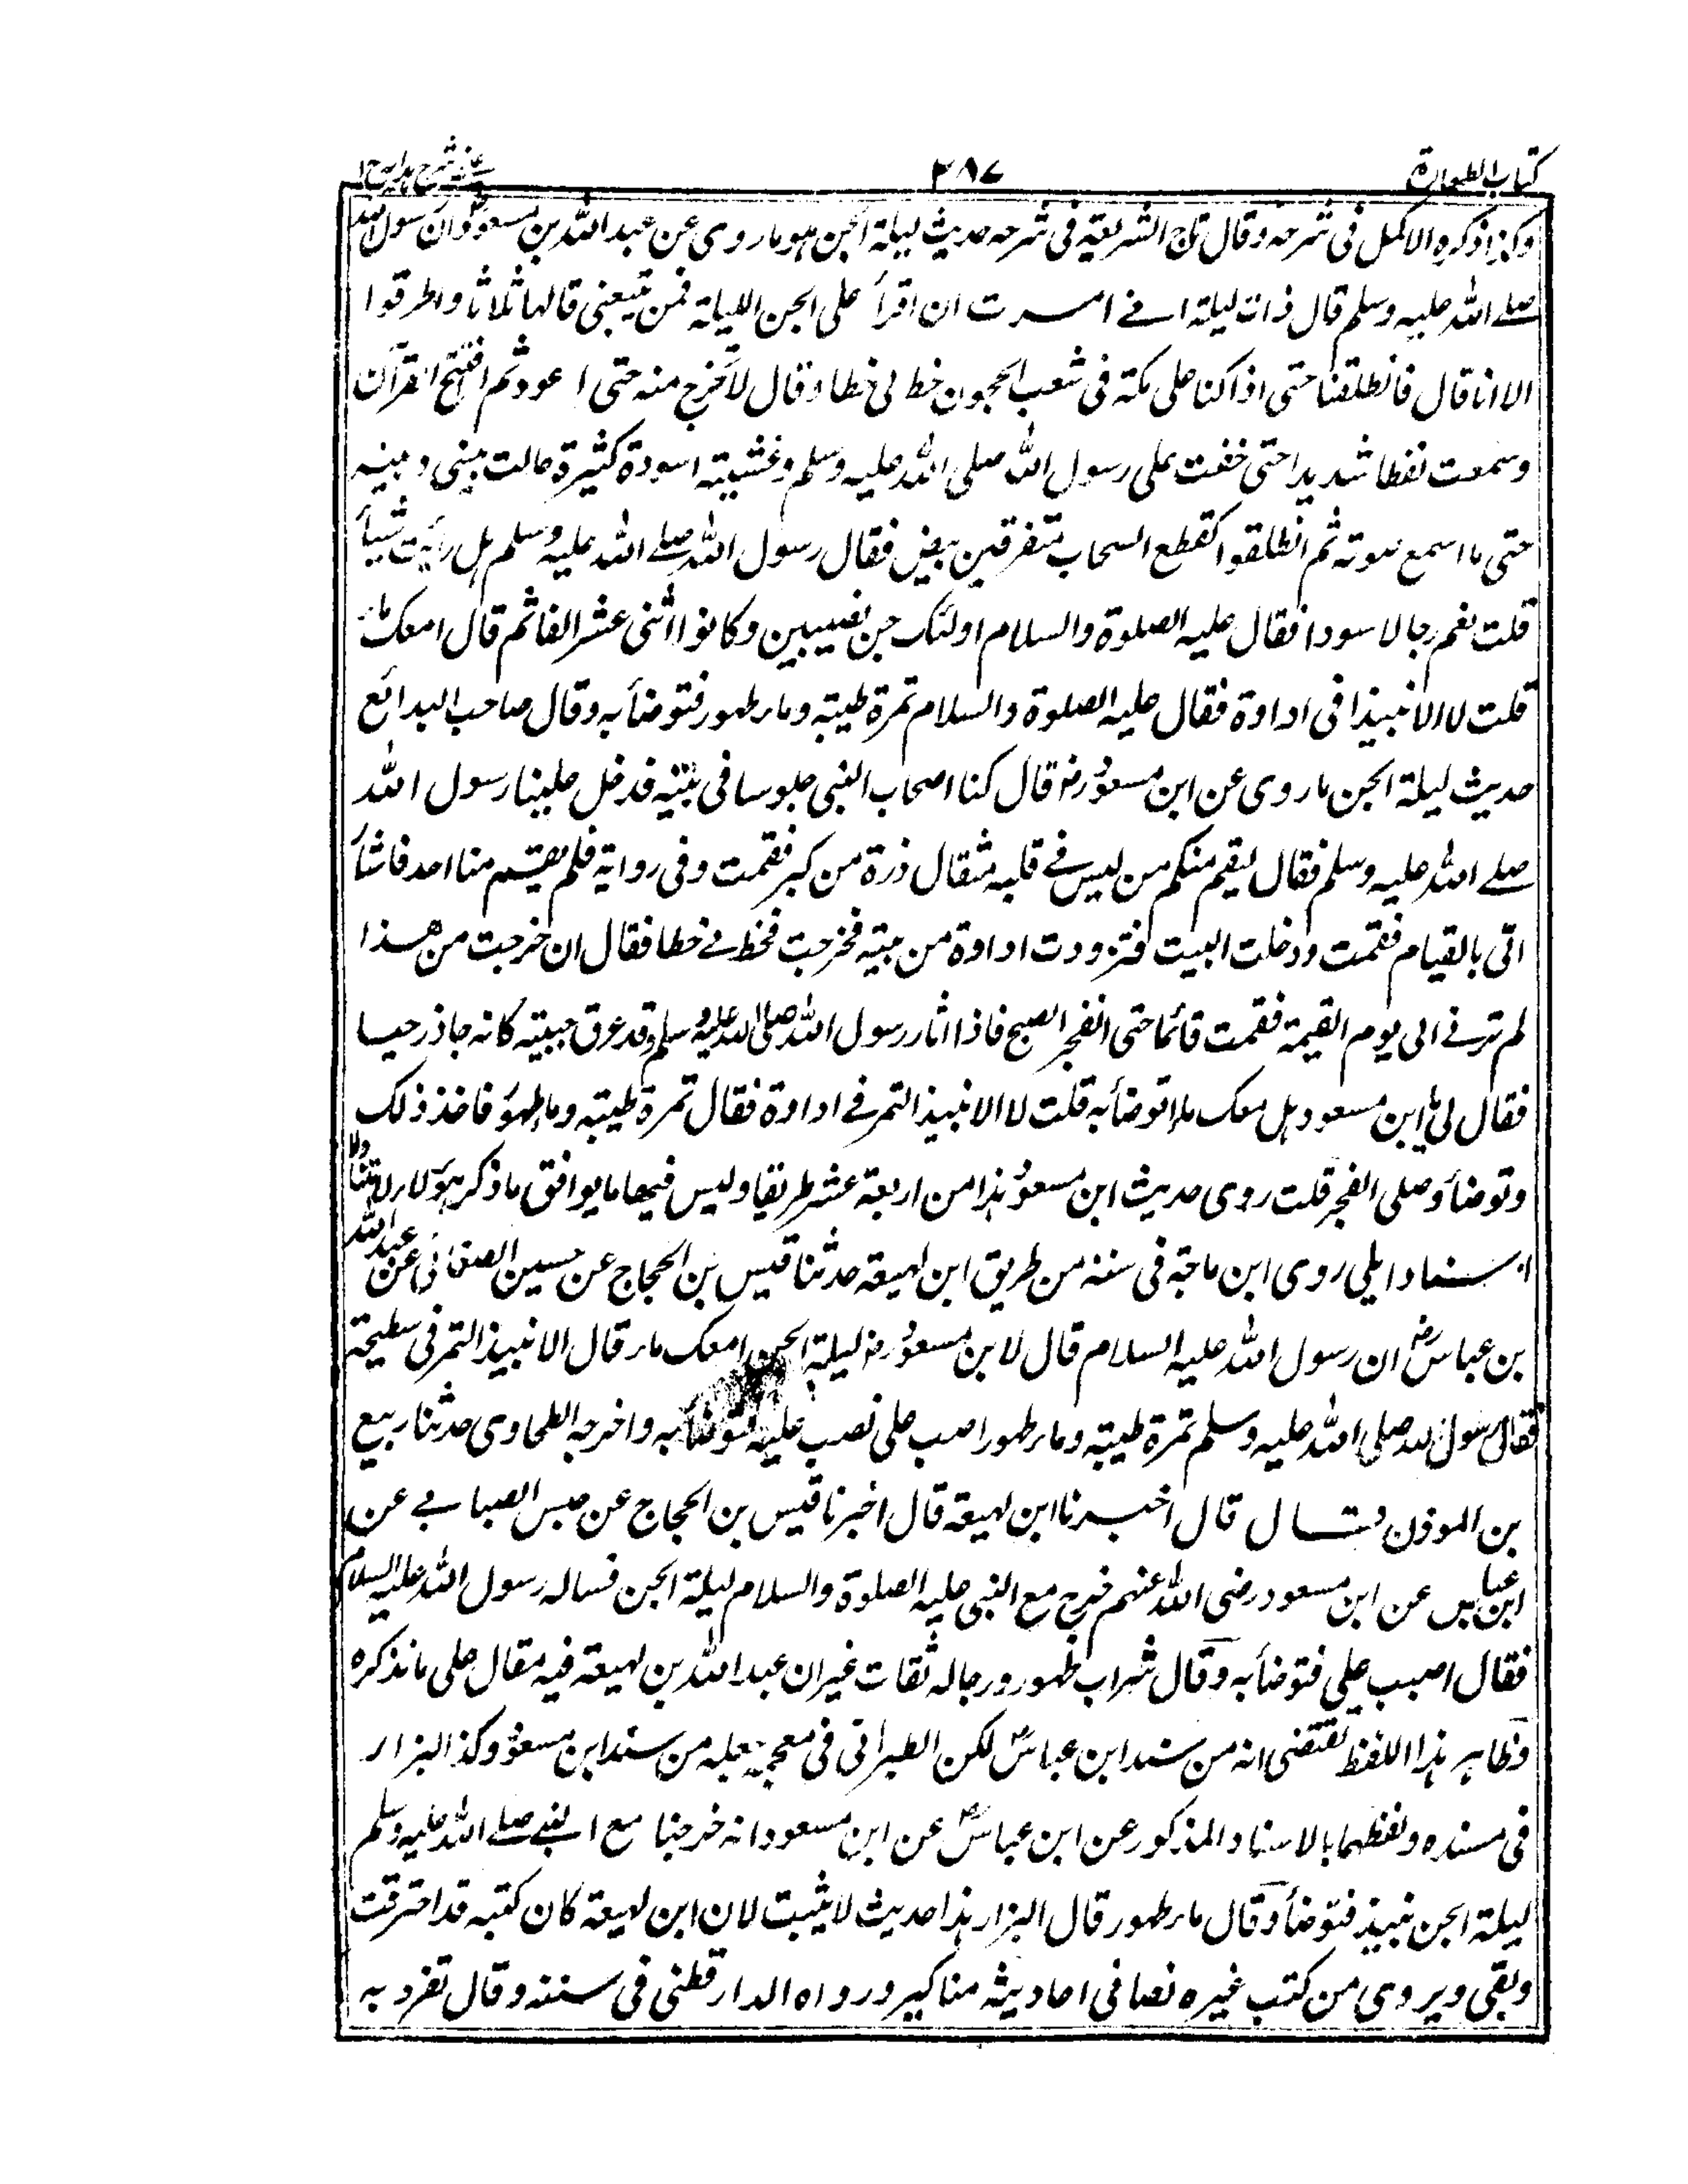 كتاب الطهارة
٢٨٧
عينى شرح هدايه ج ١
وكذا ذكره الاكمل فى شرحه وقال تاج الشريعة فى شرحه حديث ليلة الجن هو ما روى عن عبد الله بن مسعودؓ ان رسول الله
صلے الله عليه وسلم قال ذات ليلة انے امرت ان اقرأ على الجن الليلة فمن يتبعنى قالها ثلاثا واطرقوا
الا انا قال فانطلقنا حتى اذا كنا على مكة فى شعب الحجون خط لى خطا وقال لا تخرج منه حتى اعود ثم افتتح القرآن
وسمعت لغطا شديدا حتى خفت على رسول الله صلى الله عليه وسلم وغشيته اسودة كثيرة حالت بينى وبينه
حتى ما اسمع صوته ثم انطلقوا كقطع السحاب متفرقين بيض فقال رسول الله صلے الله عليه وسلم هل رأيت شيأ
قلت نعم رجالا سودا فقال عليه الصلوة والسلام اولئك جن نصيبين وكانوا اثنى عشر الفا ثم قال امعك ماء
قلت لا الا نبيذا فى اداوة فقال عليه الصلوة والسلام تمرة طيبة وماء طهور فتوضأ به وقال صاحب البدائع
حديث ليلة الجن ما روى عن ابن مسعودؓ رض قال كنا اصحاب النبى جلوسا فى بيته فدخل علينا رسول الله
صلے الله عليه وسلم فقال ليقم منكم من ليس فے قلبه مثقال ذرة من كبر فقمت وفى رواية فلم يقم منا احد فاشار
الى بالقيام فقمت ودخلت البيت فتزودت اداوة من بيته فخرجت فخط لے خطا فقال ان خرجت من هذا
لم ترنے الى يوم القيمة فقمت قائما حتى انفجر الصبح فاذا انا رسول الله صلى الله عليه وسلم وقد عرق جبينه كانه حاذر حيا
فقال لى يا ابن مسعود هل معك ماء اتوضأ به قلت لا الا نبيذ التمر فے اداوة فقال تمرة طيبة وماء طهور فاخذ ذلك
وتوضأ وصلى الفجر قلت روى حديث ابن مسعودؓ هذا من اربعة عشر طريقا وليس فيها ما يوافق ما ذكر هؤلاء لا متنا ولا
اسنادا يلى روى ابن ماجة فى سننه من طريق ابن لهيعة حدثنا قيس بن الحجاج عن حسين الصنعانى عن عبد الله
بن عباسؓ ان رسول الله عليه السلام قال لابن مسعودؓ رض ليلة الجن امعك ماء قال الا نبيذ التمر فى سطيحة
فقال رسول الله صلى الله عليه وسلم تمرة طيبة وماء طهور اصب على نصب عليه فتوضأ به واخرجه الطحاوى حدثنا ربيع
بن الموذن قال قال اخبرنا ابن لهيعة قال اخبرنا قيس بن الحجاج عن حبس الصبابے عن
ابن عباس عن ابن مسعود رضى الله عنهم خرج مع النبى عليه الصلوة والسلام ليلة الجن فساله رسول الله عليه السلام
فقال اصبب على فتوضأ به وقال شراب طهور ورجاله ثقات غير ان عبد الله بن لهيعة فيه مقال على ما نذكره
وظاهر هذا اللفظ يقتضى انه من سند ابن عباسؓ لكن الطبرانى فى معجمه جعله من سند ابن مسعودؓ وكذا البزار
فى مسنده ولفظهما بالاسناد المذكور عن ابن عباسؓ عن ابن مسعود انه خرجنا مع النبے صلے الله عليه وسلم
ليلة الجن نبيذ فتوضأ وقال ماء طهور قال البزار هذا حديث لا يثبت لان ابن لهيعة كان كتبه قد احترقت
وبقى ويروى من كتب غيره نصا فى احاديثه مناكير ورواه الدارقطنى فى سننه وقال تفرد به